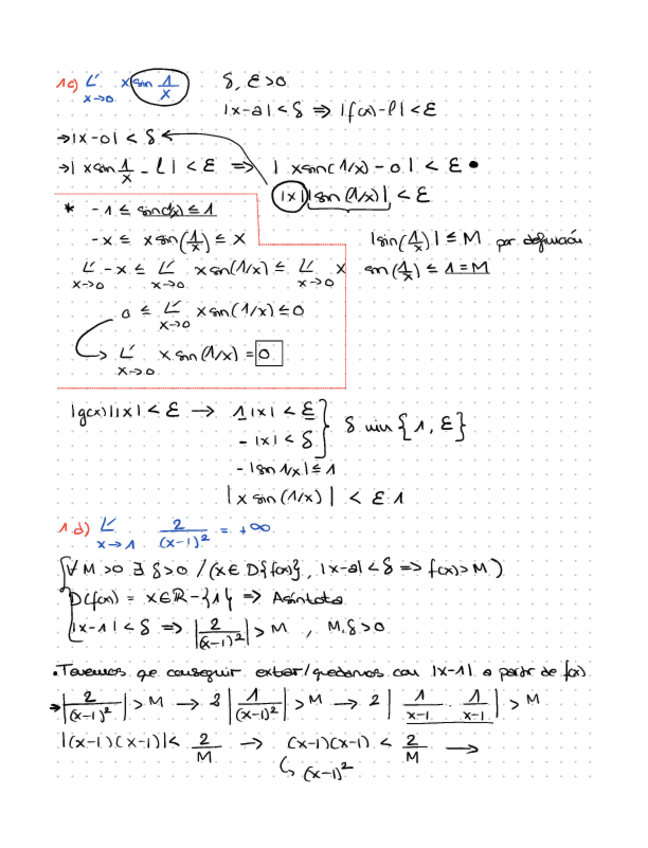 1c) L x sin 1/x   δ, ε>0
x→0   |x-a| < δ ⇒ |f(x) - l| < ε
→ |x-0| < δ
→ | x sin 1/x - L | < ε ⇒ | x sin(1/x) - 0 | < ε •
|x| |sin(1/x)| < ε
* -1 ≤ sin(1/x) ≤ 1
-x ≤ x sin(1/x) ≤ x   |sin(1/x)| ≤ M por definición
L x→0 -x ≤ L x→0 x sin(1/x) ≤ L x→0 x   sin(1/x) ≤ 1 = M
0 ≤ L x→0 x sin(1/x) ≤ 0
L x→0 x sin(1/x) = 0
|g(x)||x| < ε → 1|x| < ε
- |x| < δ } δ min {1, ε}
- |sin 1/x| ≤ 1
| x sin(1/x) | < ε·1
1d) L x→1 2/(x-1)² = +∞
∀ M>0 ∃ δ>0 / (x ∈ D{f(x)}, |x-a| < δ ⇒ f(x) > M)
D(f(x)) = x∈ℝ - {1} ⇒ Asíntota
|x-1| < δ ⇒ |2/(x-1)²| > M , M,δ>0
• Tenemos qe conseguir extraer/quedarnos con |x-1| a partir de f(x)
→ |2/(x-1)²| > M → 2 |1/(x-1)²| > M → 2 | 1/x-1 · 1/x-1 | > M
|(x-1)(x-1)| < 2/M → (x-1)(x-1) < 2/M →
↳ (x-1)²